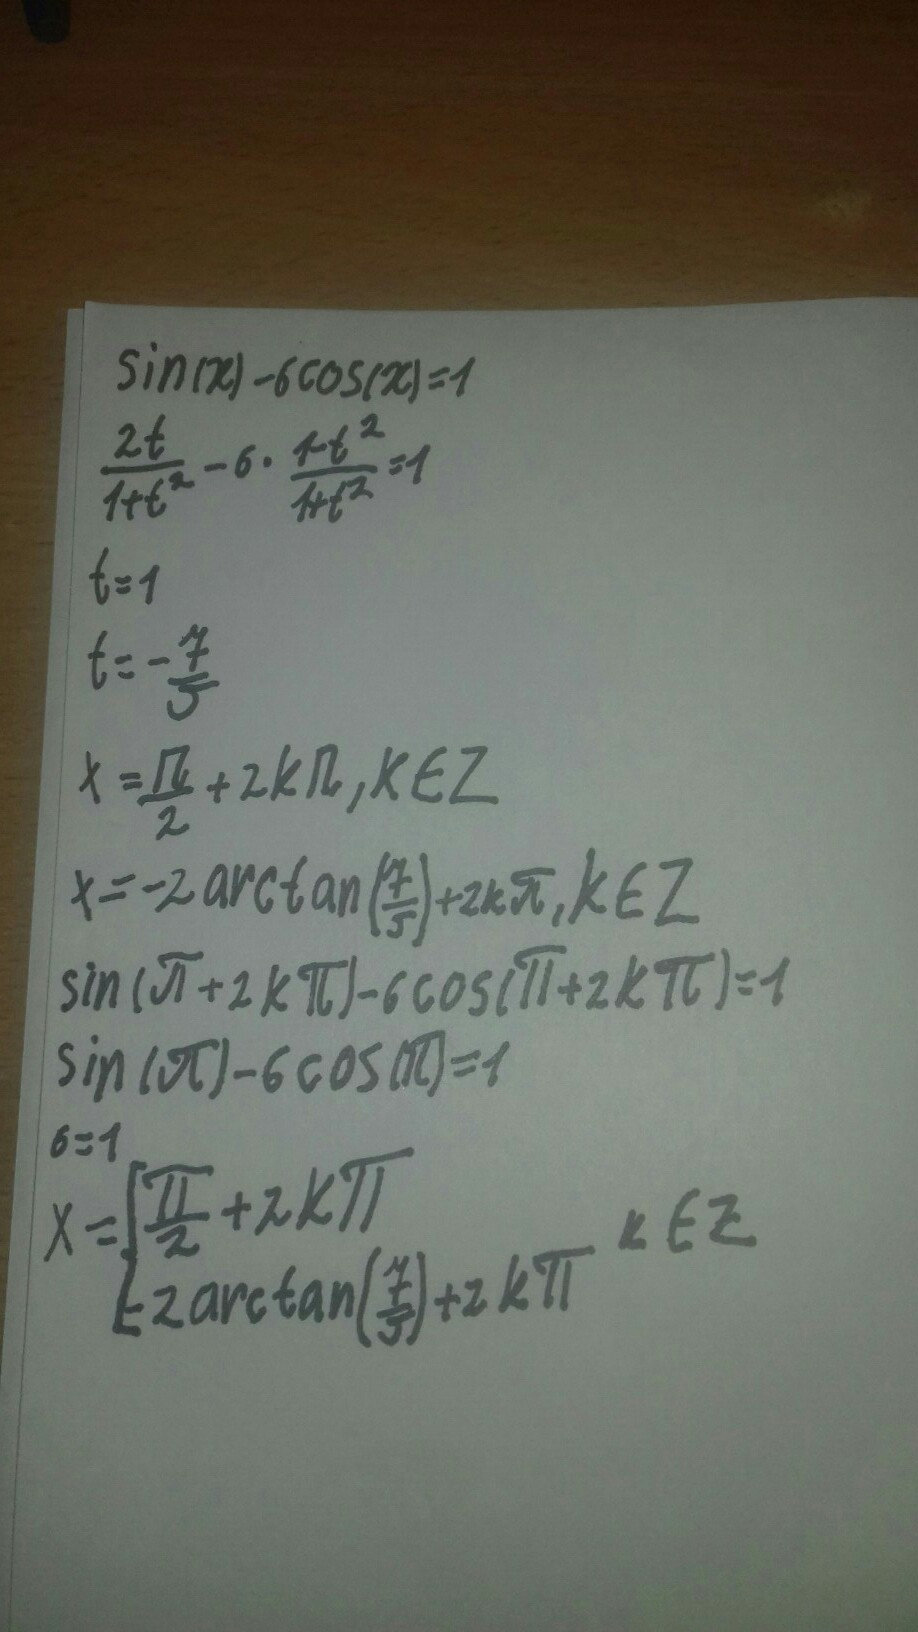 sin(x)-6cos(x)=1
2t/1+t² - 6 · 1-t²/1+t² = 1
t=1
t=-7/5
x=π/2+2kπ, k∈Z
x=-2arctan(7/5)+2kπ, k∈Z
sin(π+2kπ)-6cos(π+2kπ)=1
sin(π)-6cos(π)=1
6=1
x=[π/2+2kπ
-2arctan(7/5)+2kπ k∈Z